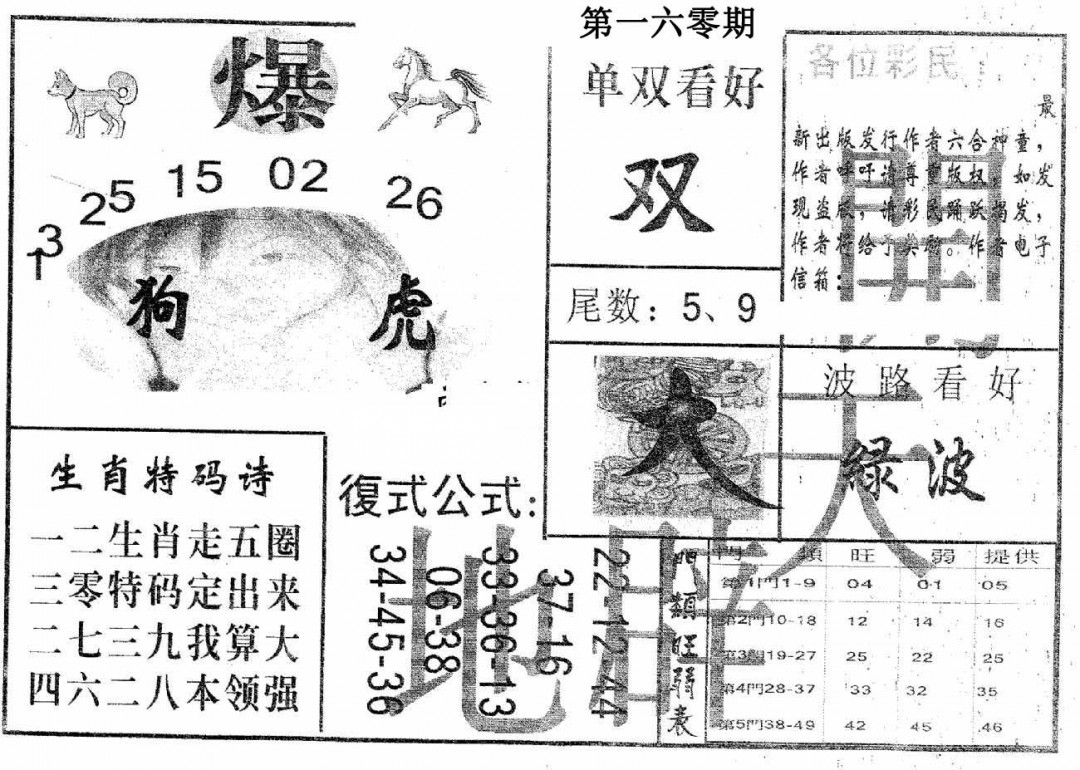 第一六零期
爆
13
25
15
02
26
狗
虎
单双看好
双
尾数：5、9
大
各位彩民：
最
新出版发行作者六合神童，
作者呼吁请尊重版权，如发
现盗版，请彩民踊跃揭发，
作者将给予奖励。作者电子
信箱：
波路看好
緑波
生肖特码诗
一二生肖走五圈
三零特码定出来
二七三九我算大
四六二八本领强
復式公式：
34-45-36
06-38
33-36-13
37-16
22-12-44
門類旺弱表
門 類 旺 弱 提供
第1門1-9 04 01 05
第2門10-18 12 14 16
第3門19-27 25 22 25
第4門28-37 33 32 35
第5門38-49 42 45 46